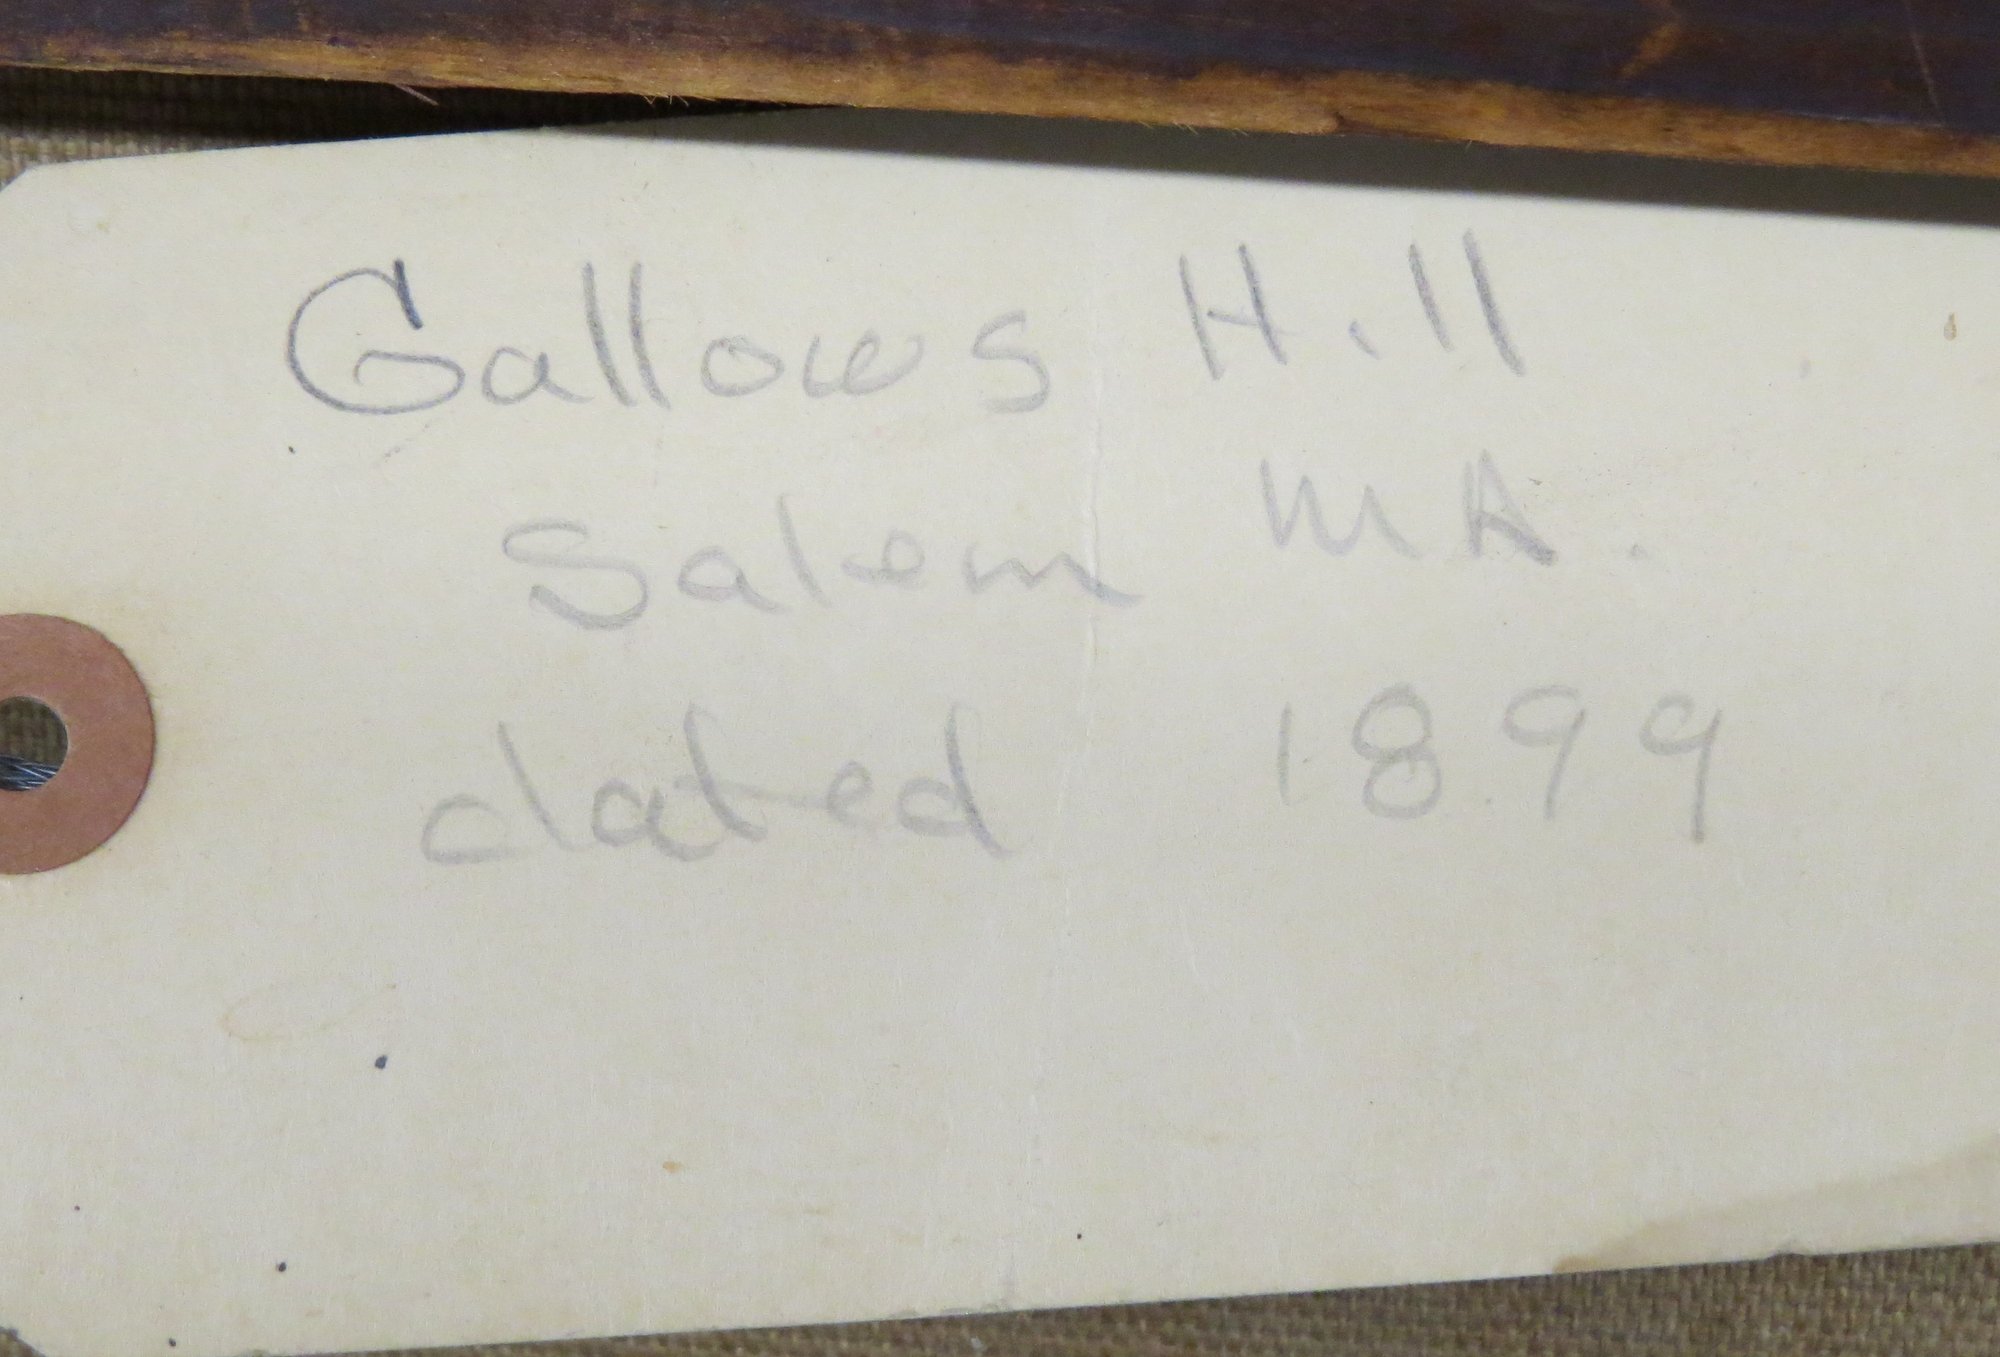 Gallows Hill
Salem MA.
dated 1899